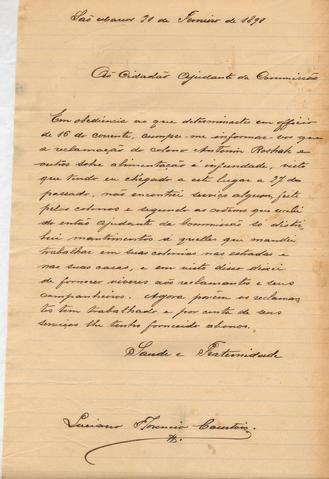 São Marcos 21 de Fevereiro de 1891
Ao Cidadão Ajudante da Commissão
Em obediencia ao que determinaste em officio
de 16 do corrente, cumpre-me informar-vos que
a reclamação do colono Antonin Roshak e
outros sobre alimentação é infundada, visto
que tendo eu chegado a este lugar a 27 do
passado, não encontrei serviço algum feito
pelos colonos e segundo as ordens que
do então Ajudante da Commissão só distri-
bui mantimentos a quelles que mandei
trabalhar em suas colonias nas estradas e
nas suas casas, e em visto disso deixei
de fornecer viveres aos reclamantes e seus
companheiros. Agora porém os reclaman-
tes tem trabalhado e por conta de seus
serviços lhe tenho fornecido abonos.
Saude e Fraternidade
Luciano Florencio